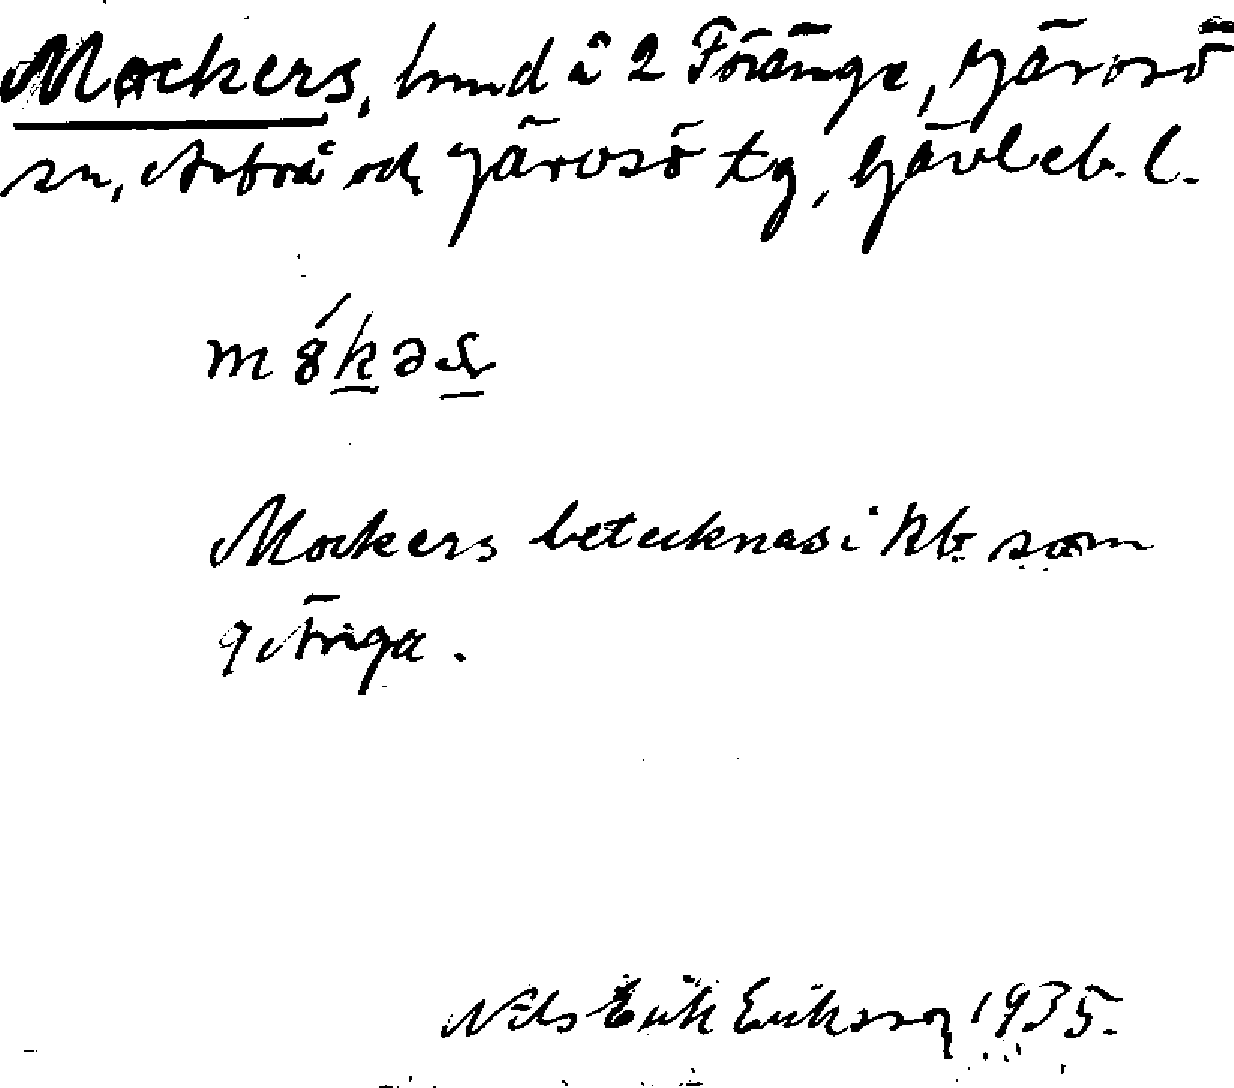 Mockers, hmd å 2 Föränge, Järvsö
sn, Arbrå och Järvsö tg, Gävleb. l.
Mockers betecknas i kb som
Nils Erik Eriksson 1935.